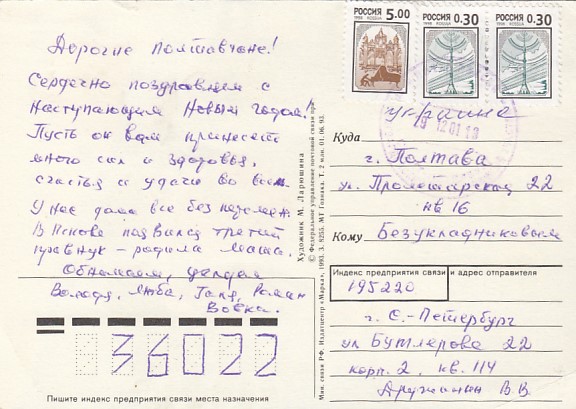 Дорогие полтавчане!
Сердечно поздравляем с
наступающим Новым годом!
Пусть он вам принесет
много сил и здоровья,
счастья и удачи во всем.
У нас дома все без перемен.
В Пскове появился третий
правнук – родила Маша.
Обнимаем, целуем
Володя, Люба, Галя, Роман
Вовка.
36022
Пишите индекс предприятия связи места назначения
Художник М. Ларюшина
© Федеральное управление почтовой связи при
Мин. связи РФ. Издатцентр «Марка», 1993. З. 8255. МТ Гознака. Т. 2 млн. 01.06.93.
РОССИЯ 5.00
1998 ROSSIJA
РОССИЯ 0.30
1998 ROSSIJA
РОССИЯ 0.30
1998 ROSSIJA
Украина
12 01
Куда
г. Полтава
ул. Пролетарская 22
кв 16
Кому Безукладниковым
Индекс предприятия связи и адрес отправителя
195220
г. С-Петербург
ул Бутлерова 22
корп. 2, кв. 114
Дружинин В.В.